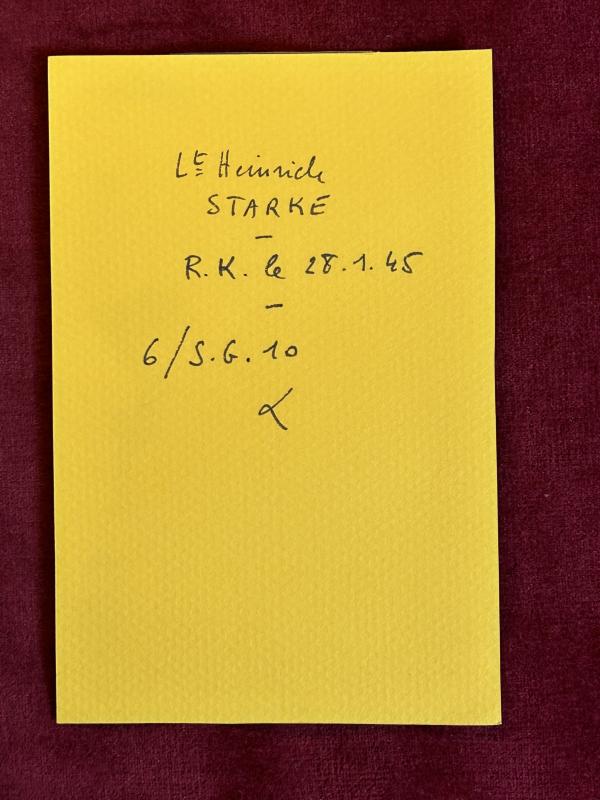 Lt Heinrich
STARKE
–
R.K. le 28.1.45
–
6/S.G.10